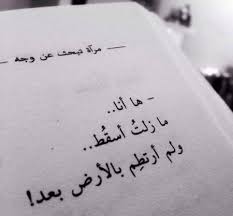 مرآة تبحث عن وجه
- ها أنا..
ما زلتُ أسقُط..
ولم أرتطِم بالأرض بعد!